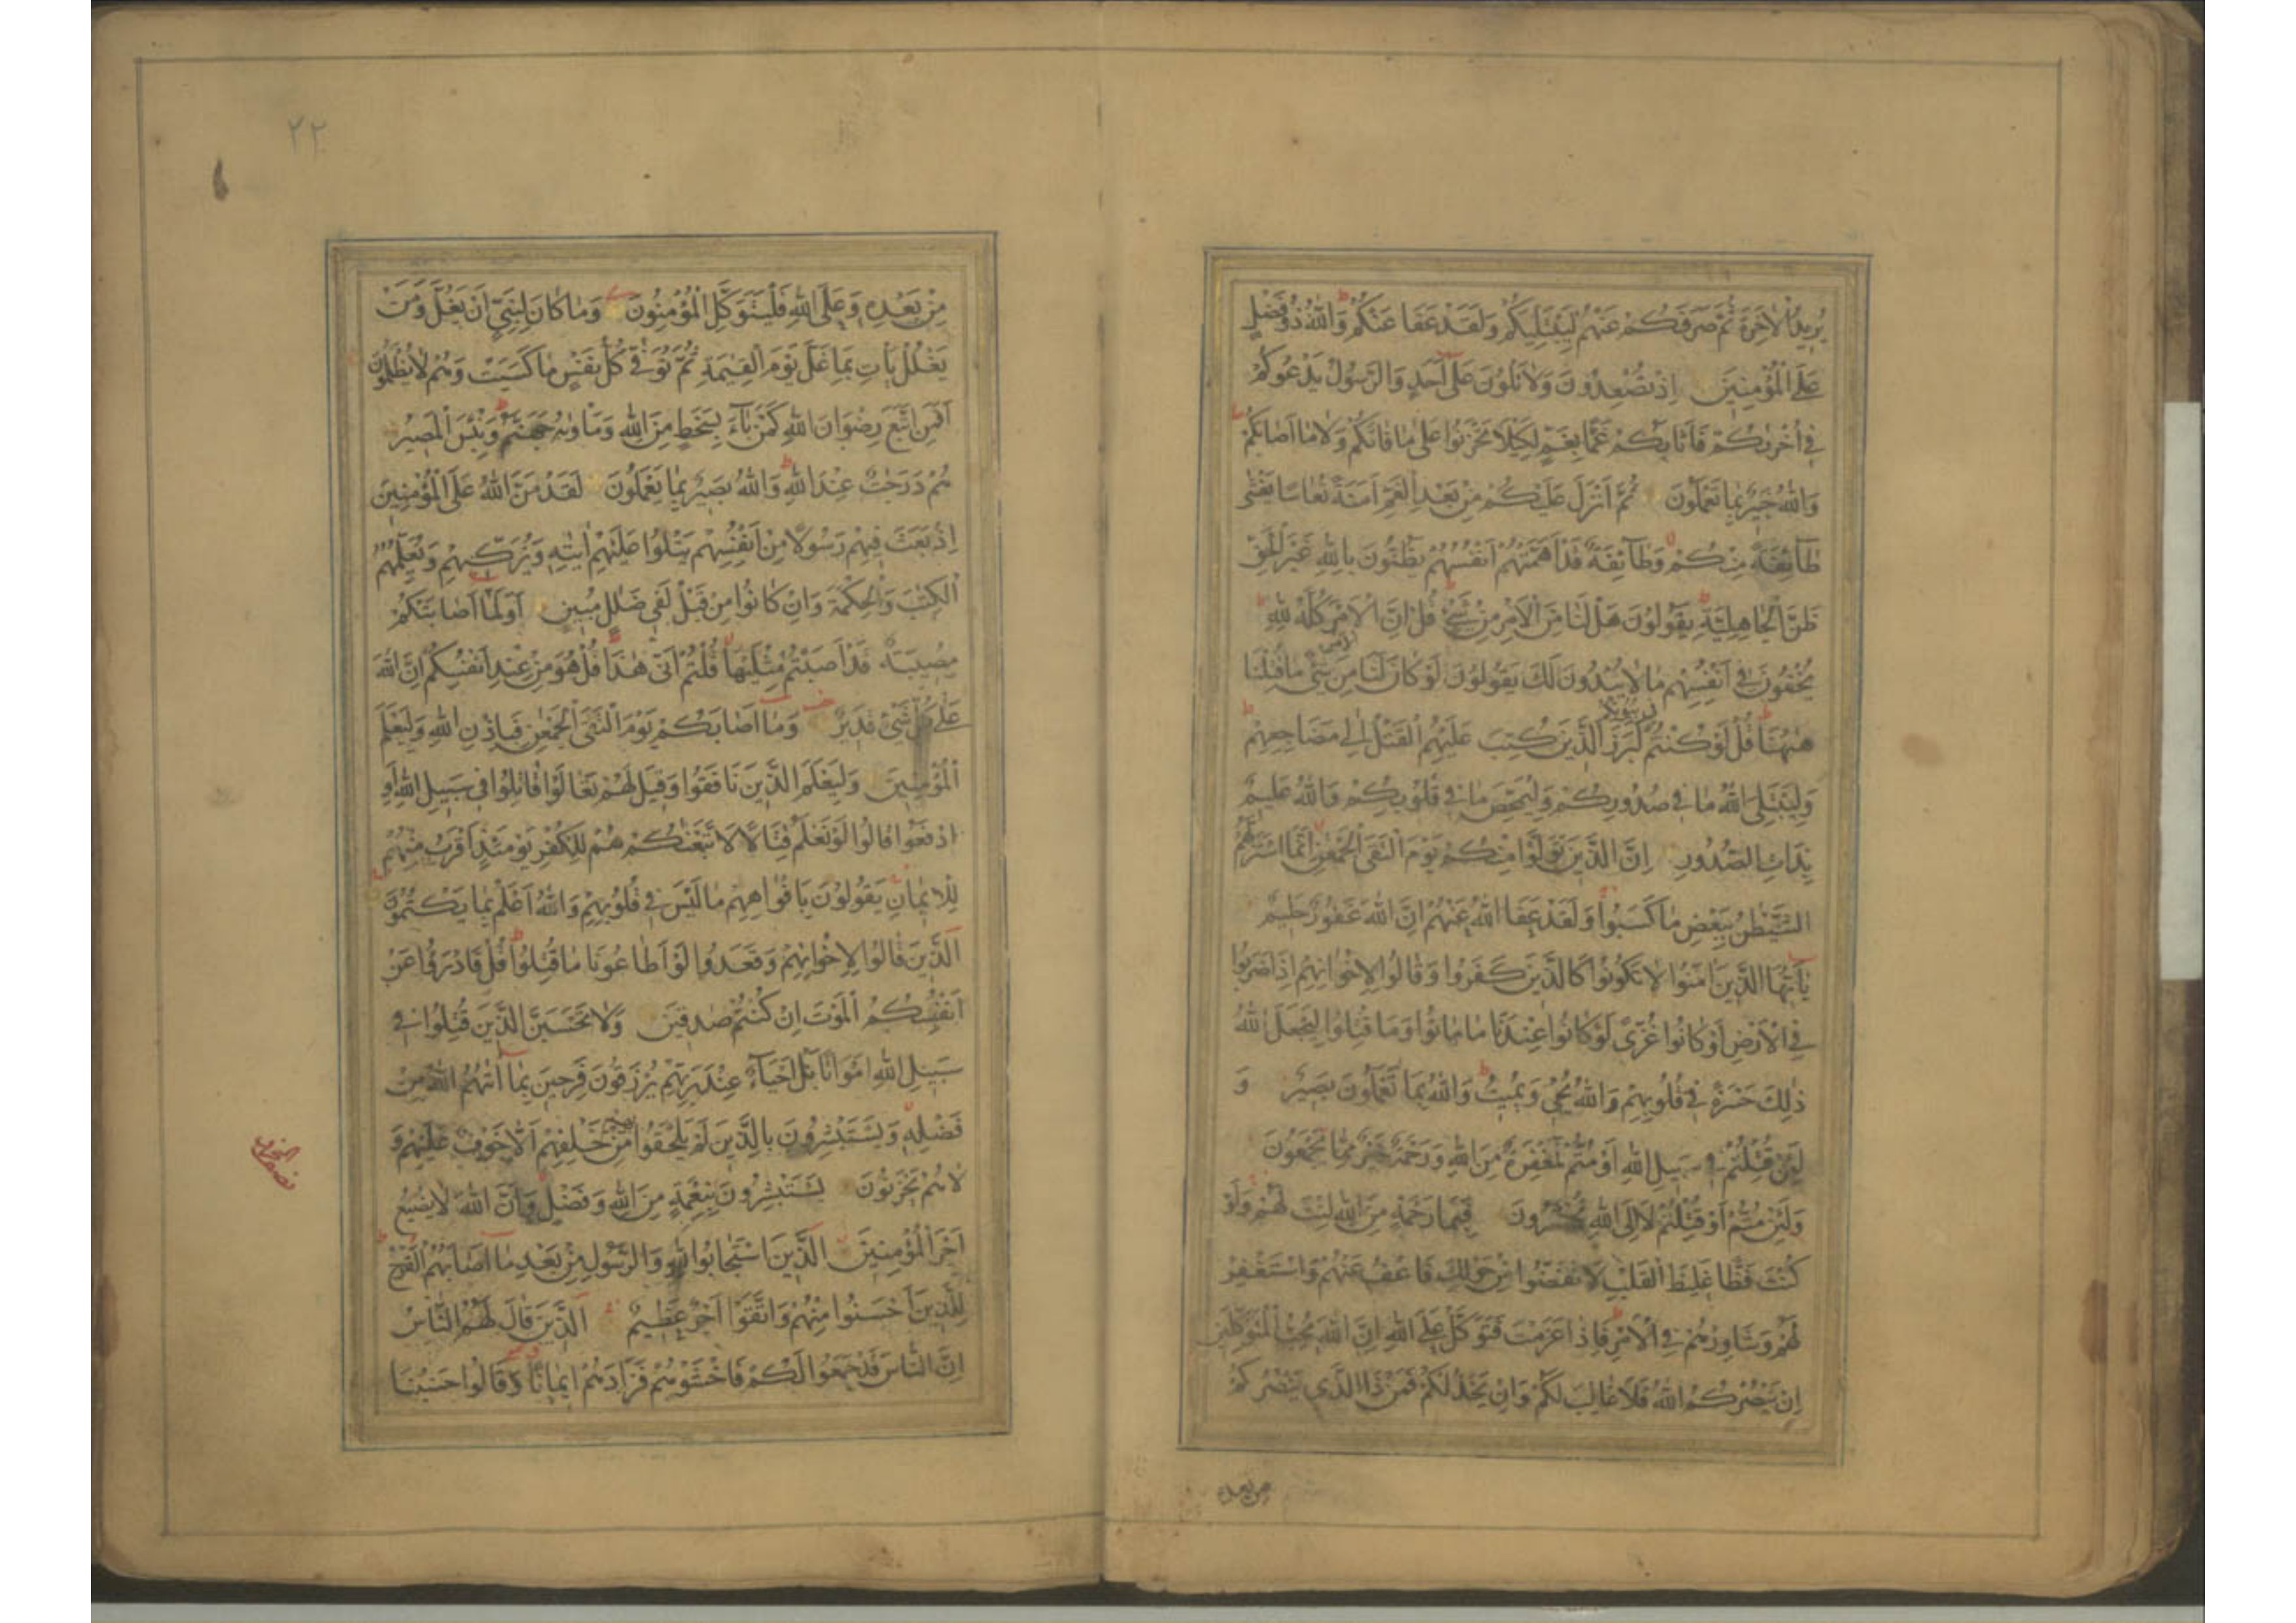 يُرِيدُ الْاٰخِرَةَ ثُمَّ صَرَفَكُمْ عَنْهُمْ لِيَبْتَلِيَكُمْ وَلَقَدْ عَفَا عَنْكُمْ وَاللّٰهُ ذُو فَضْلٍ
عَلَى الْمُؤْمِنِينَ اِذْ تُصْعِدُونَ وَلَا تَلْوُنَ عَلٰى اَحَدٍ وَالرَّسُولُ يَدْعُوكُمْ
فِي اُخْرٰىكُمْ فَاَثَابَكُمْ غَمًّا بِغَمٍّ لِكَيْلَا تَحْزَنُوا عَلٰى مَا فَاتَكُمْ وَلَا مَا اَصَابَكُمْ
وَاللّٰهُ خَبِيرٌ بِمَا تَعْمَلُونَ ثُمَّ اَنْزَلَ عَلَيْكُمْ مِنْ بَعْدِ الْغَمِّ اَمَنَةً نُعَاسًا يَغْشٰى
طَائِفَةً مِنْكُمْ وَطَائِفَةٌ قَدْ اَهَمَّتْهُمْ اَنْفُسُهُمْ يَظُنُّونَ بِاللّٰهِ غَيْرَ الْحَقِّ
ظَنَّ الْجَاهِلِيَّةِ يَقُولُونَ هَلْ لَنَا مِنَ الْاَمْرِ مِنْ شَيْءٍ قُلْ اِنَّ الْاَمْرَ كُلَّهُ لِلّٰهِ
يُخْفُونَ فِي اَنْفُسِهِمْ مَا لَا يُبْدُونَ لَكَ يَقُولُونَ لَوْ كَانَ لَنَا مِنَ الْاَمْرِ شَيْءٌ مَا قُتِلْنَا
هٰهُنَا قُلْ لَوْ كُنْتُمْ فِي بُيُوتِكُمْ لَبَرَزَ الَّذِينَ كُتِبَ عَلَيْهِمُ الْقَتْلُ اِلٰى مَضَاجِعِهِمْ
وَلِيَبْتَلِيَ اللّٰهُ مَا فِي صُدُورِكُمْ وَلِيُمَحِّصَ مَا فِي قُلُوبِكُمْ وَاللّٰهُ عَلِيمٌ
بِذَاتِ الصُّدُورِ اِنَّ الَّذِينَ تَوَلَّوْا مِنْكُمْ يَوْمَ الْتَقَى الْجَمْعٰنِ اِنَّمَا اسْتَزَلَّهُمُ
الشَّيْطٰنُ بِبَعْضِ مَا كَسَبُوا وَلَقَدْ عَفَا اللّٰهُ عَنْهُمْ اِنَّ اللّٰهَ غَفُورٌ حَلِيمٌ
يٰاَيُّهَا الَّذِينَ اٰمَنُوا لَا تَكُونُوا كَالَّذِينَ كَفَرُوا وَقَالُوا لِاِخْوٰانِهِمْ اِذَا ضَرَبُوا
فِي الْاَرْضِ اَوْ كَانُوا غُزًّى لَوْ كَانُوا عِنْدَنَا مَا مَاتُوا وَمَا قُتِلُوا لِيَجْعَلَ اللّٰهُ
ذٰلِكَ حَسْرَةً فِي قُلُوبِهِمْ وَاللّٰهُ يُحْيِ وَيُمِيتُ وَاللّٰهُ بِمَا تَعْمَلُونَ بَصِيرٌ وَ
لَئِنْ قُتِلْتُمْ فِي سَبِيلِ اللّٰهِ اَوْ مُتُّمْ لَمَغْفِرَةٌ مِنَ اللّٰهِ وَرَحْمَةٌ خَيْرٌ مِمَّا تَجْمَعُونَ
وَلَئِنْ مُتُّمْ اَوْ قُتِلْتُمْ لَاِلَى اللّٰهِ تُحْشَرُونَ فَبِمَا رَحْمَةٍ مِنَ اللّٰهِ لِنْتَ لَهُمْ وَلَوْ
كُنْتَ فَظًّا غَلِيظَ الْقَلْبِ لَانْفَضُّوا مِنْ حَوْلِكَ فَاعْفُ عَنْهُمْ وَاسْتَغْفِرْ
لَهُمْ وَشَاوِرْهُمْ فِي الْاَمْرِ فَاِذَا عَزَمْتَ فَتَوَكَّلْ عَلَى اللّٰهِ اِنَّ اللّٰهَ يُحِبُّ الْمُتَوَكِّلِينَ
اِنْ يَنْصُرْكُمُ اللّٰهُ فَلَا غَالِبَ لَكُمْ وَاِنْ يَخْذُلْكُمْ فَمَنْ ذَا الَّذِي يَنْصُرُكُمْ
من بعده
٢٢
مِنْ بَعْدِهِ وَعَلَى اللّٰهِ فَلْيَتَوَكَّلِ الْمُؤْمِنُونَ وَمَا كَانَ لِنَبِيٍّ اَنْ يَغُلَّ وَمَنْ
يَغْلُلْ يَأْتِ بِمَا غَلَّ يَوْمَ الْقِيٰمَةِ ثُمَّ تُوَفّٰى كُلُّ نَفْسٍ مَا كَسَبَتْ وَهُمْ لَا يُظْلَمُونَ
اَفَمَنِ اتَّبَعَ رِضْوَانَ اللّٰهِ كَمَنْ بَاءَ بِسَخَطٍ مِنَ اللّٰهِ وَمَأْوٰىهُ جَهَنَّمُ وَبِئْسَ الْمَصِيرُ
هُمْ دَرَجٰتٌ عِنْدَ اللّٰهِ وَاللّٰهُ بَصِيرٌ بِمَا يَعْمَلُونَ لَقَدْ مَنَّ اللّٰهُ عَلَى الْمُؤْمِنِينَ
اِذْ بَعَثَ فِيهِمْ رَسُولًا مِنْ اَنْفُسِهِمْ يَتْلُوا عَلَيْهِمْ اٰيٰتِهِ وَيُزَكِّيهِمْ وَيُعَلِّمُهُمُ
الْكِتٰبَ وَالْحِكْمَةَ وَاِنْ كَانُوا مِنْ قَبْلُ لَفِي ضَلٰلٍ مُبِينٍ اَوَلَمَّا اَصَابَتْكُمْ
مُصِيبَةٌ قَدْ اَصَبْتُمْ مِثْلَيْهَا قُلْتُمْ اَنّٰى هٰذَا قُلْ هُوَ مِنْ عِنْدِ اَنْفُسِكُمْ اِنَّ اللّٰهَ
عَلٰى كُلِّ شَيْءٍ قَدِيرٌ وَمَا اَصَابَكُمْ يَوْمَ الْتَقَى الْجَمْعٰنِ فَبِاِذْنِ اللّٰهِ وَلِيَعْلَمَ
الْمُؤْمِنِينَ وَلِيَعْلَمَ الَّذِينَ نَافَقُوا وَقِيلَ لَهُمْ تَعَالَوْا قَاتِلُوا فِي سَبِيلِ اللّٰهِ اَوِ
ادْفَعُوا قَالُوا لَوْ نَعْلَمُ قِتَالًا لَاتَّبَعْنٰكُمْ هُمْ لِلْكُفْرِ يَوْمَئِذٍ اَقْرَبُ مِنْهُمْ
لِلْاِيمَانِ يَقُولُونَ بِاَفْوَاهِهِمْ مَا لَيْسَ فِي قُلُوبِهِمْ وَاللّٰهُ اَعْلَمُ بِمَا يَكْتُمُونَ
اَلَّذِينَ قَالُوا لِاِخْوَانِهِمْ وَقَعَدُوا لَوْ اَطَاعُونَا مَا قُتِلُوا قُلْ فَادْرَؤُا عَنْ
اَنْفُسِكُمُ الْمَوْتَ اِنْ كُنْتُمْ صٰدِقِينَ وَلَا تَحْسَبَنَّ الَّذِينَ قُتِلُوا فِي
سَبِيلِ اللّٰهِ اَمْوَاتًا بَلْ اَحْيَاءٌ عِنْدَ رَبِّهِمْ يُرْزَقُونَ فَرِحِينَ بِمَا اٰتٰىهُمُ اللّٰهُ مِنْ
فَضْلِهِ وَيَسْتَبْشِرُونَ بِالَّذِينَ لَمْ يَلْحَقُوا بِهِمْ مِنْ خَلْفِهِمْ اَلَّا خَوْفٌ عَلَيْهِمْ وَ
لَا هُمْ يَحْزَنُونَ يَسْتَبْشِرُونَ بِنِعْمَةٍ مِنَ اللّٰهِ وَفَضْلٍ وَاَنَّ اللّٰهَ لَا يُضِيعُ
اَجْرَ الْمُؤْمِنِينَ الَّذِينَ اسْتَجَابُوا لِلّٰهِ وَالرَّسُولِ مِنْ بَعْدِ مَا اَصَابَهُمُ الْقَرْحُ
لِلَّذِينَ اَحْسَنُوا مِنْهُمْ وَاتَّقَوْا اَجْرٌ عَظِيمٌ اَلَّذِينَ قَالَ لَهُمُ النَّاسُ
اِنَّ النَّاسَ قَدْ جَمَعُوا لَكُمْ فَاخْشَوْهُمْ فَزَادَهُمْ اِيمَانًا وَقَالُوا حَسْبُنَا